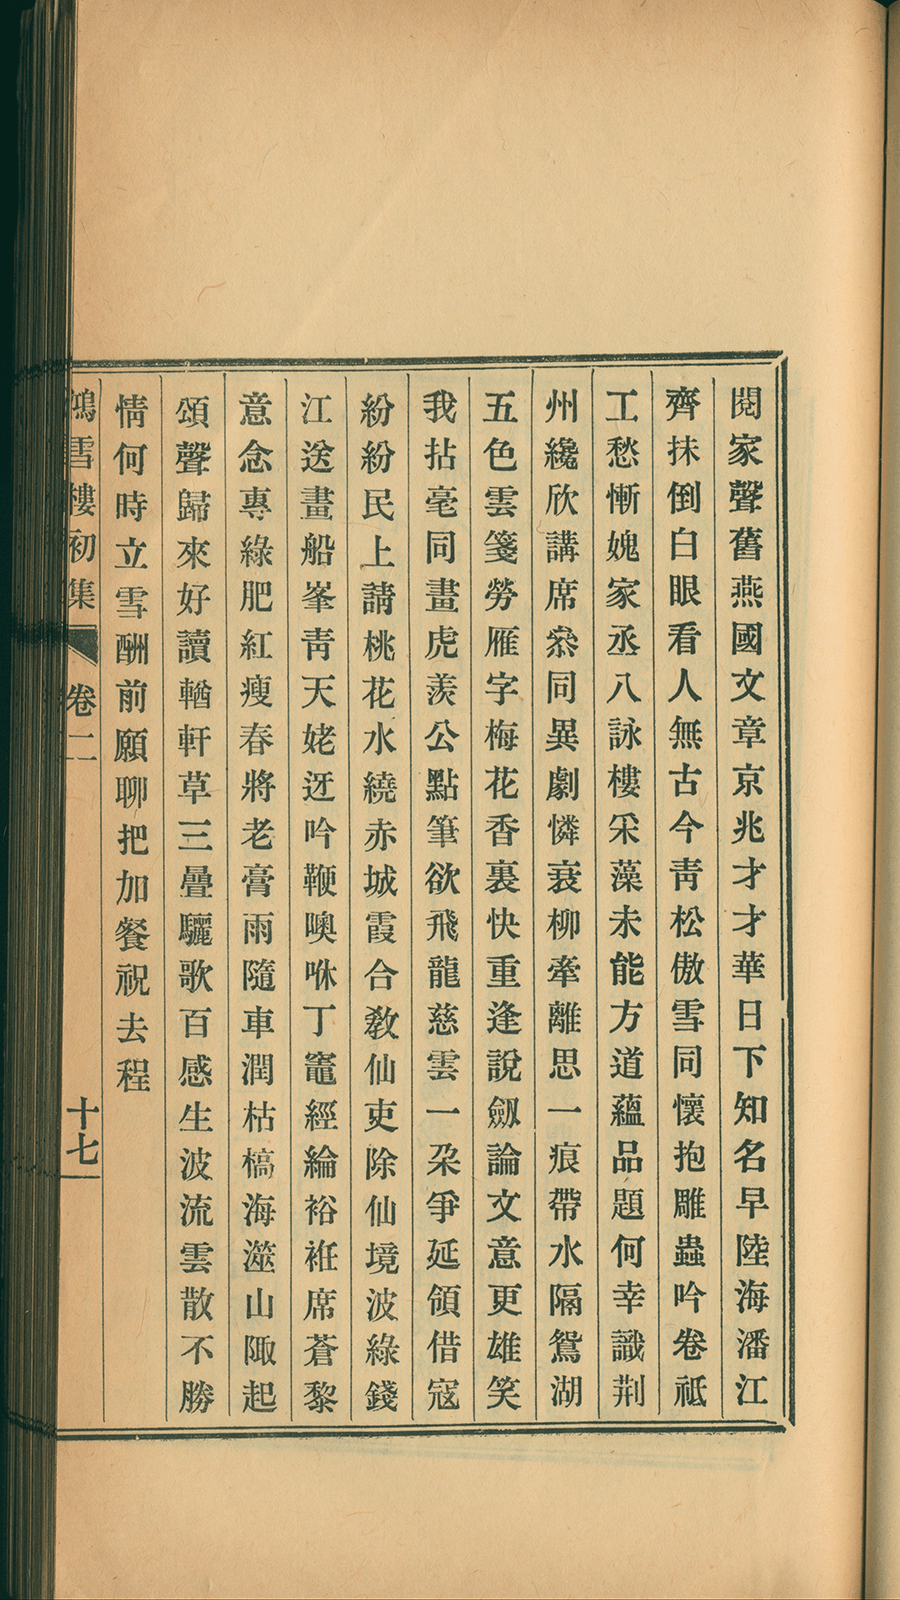 閱家聲舊燕國文章京兆才才華日下知名早陸海潘江
齊抹倒白眼看人無古今靑松傲雪同懷抱雕蟲吟卷祗
工愁慚媿家丞八詠樓采藻未能方道蘊品題何幸識荆
州纔欣講席叅同異劇憐衰柳牽離思一痕帶水隔鴛湖
五色雲箋勞雁字梅花香裏快重逢說劔論文意更雄笑
我拈毫同畫虎羨公點筆欲飛龍慈雲一朶爭延領借寇
紛紛民上請桃花水繞赤城霞合教仙吏除仙境波綠錢
江送畫船峯靑天姥迓吟鞭噢咻丁竈經綸裕袵席蒼黎
意念專綠肥紅瘦春將老膏雨隨車潤枯槁海澨山陬起
頌聲歸來好讀輶軒草三疊驪歌百感生波流雲散不勝
情何時立雪酬前願聊把加餐祝去程
鴻雪樓初集 卷二 十七